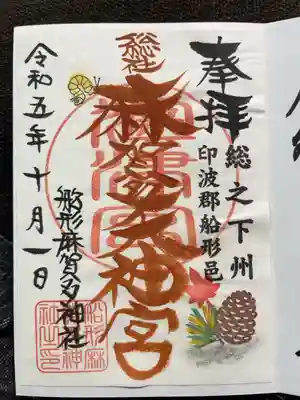 奉拝
総之下州
印波郡船形邑
総社
麻賀多大神宮
令和五年十月一日
船形麻賀多神社